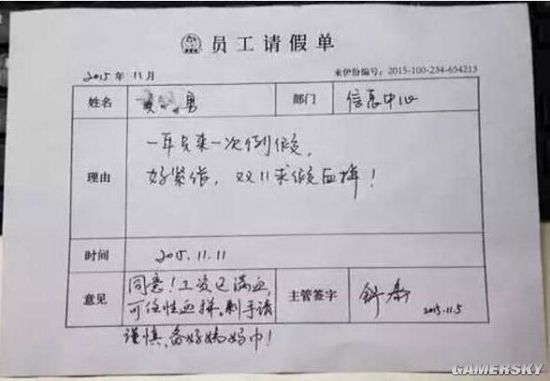 员工请假单
2015年11月
来伊份编号：2015-100-234-654213
姓名 黄 勇 部门 信息中心
理由
一年只来一次例假，
好紧张，双11求假血拼！
时间 2015.11.11
意见 主管签字
同意！工资已满血，
可任性血拼。剁手请
谨慎，备好妈妈巾！
2015.11.5
GAMERSKY